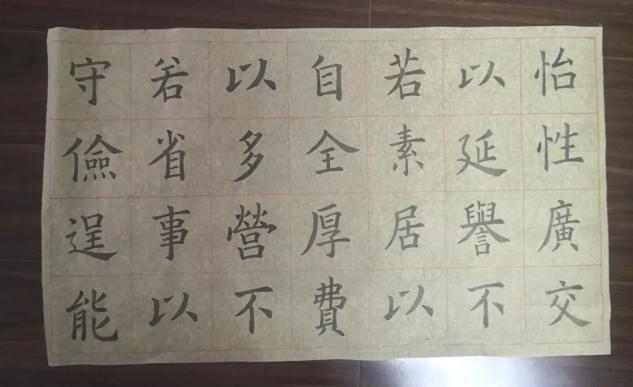 怡性廣交
以延譽不
若素居以
自全厚費
以多營不
若省事以
守儉逞能